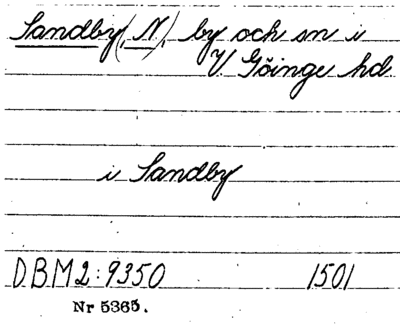 Sandby (, N), by och sn i
V. Göinge hd
i Sandby
DBM2:9350 1501
Nr 5365.